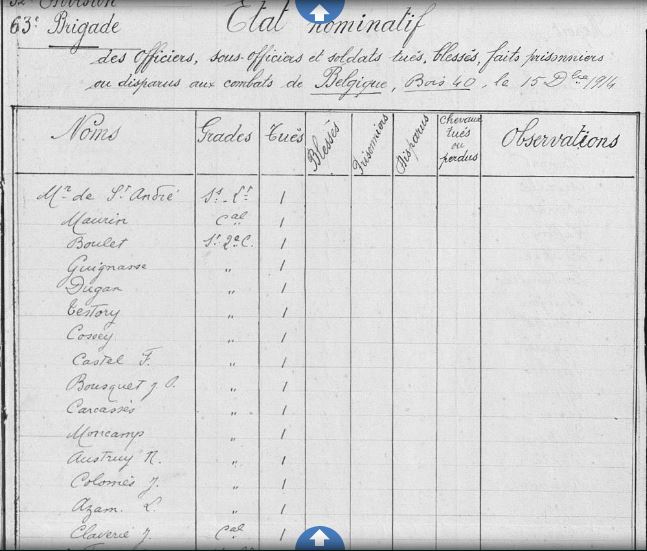 32e Division
63e Brigade
Etat nominatif
des Officiers, sous-officiers et soldats tués, blessés, faits prisonniers
ou disparus aux combats de Belgique, Bois 40, le 15 Dbre 1914
Noms Grades Tués Blessés Prisonniers Disparus Chevaux tués ou perdus Observations
Mr de St André Ss-Lt 1
Maurin Cal 1
Boulet St 2e C. 1
Guignasse " 1
Dugan " 1
Testory " 1
Cossey " 1
Castel F. " 1
Bousquet J. " 1
Carcassès " 1
Moncamp " 1
Austruy N. " 1
Colomès J. " 1
Azam L. " 1
Claverie J. Cal 1